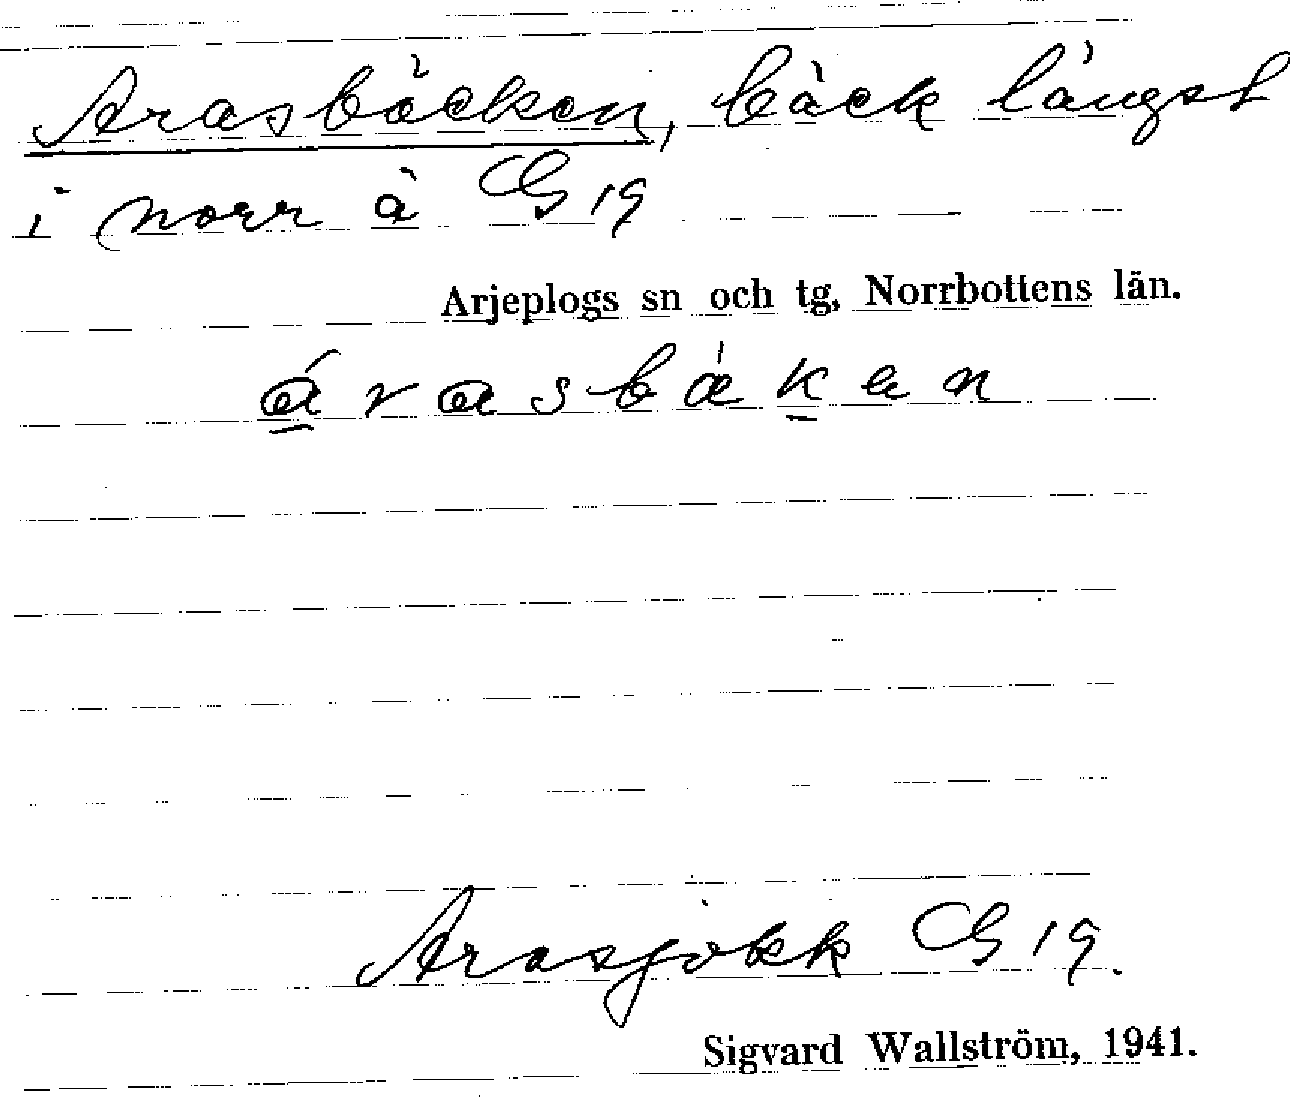 Arasbäcken, bäck längst
i norr å G 19
Arjeplogs sn och tg, Norrbottens län.
árasbäken
Arasjokk G 19.
Sigvard Wallström, 1941.